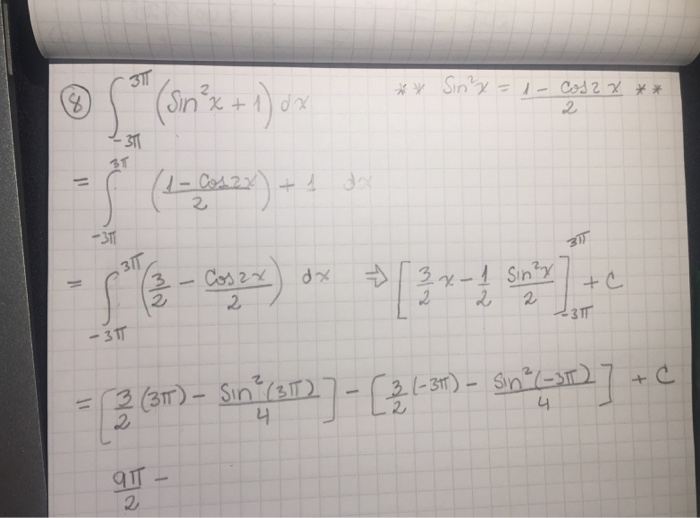 ⑧ ∫_{-3π}^{3π} (Sin²x + 1) dx ** Sin²x = (1 - Cos2x)/2 **
= ∫_{-3π}^{3π} ((1 - Cos2x)/2) + 1 dx
= ∫_{-3π}^{3π} (3/2 - Cos2x/2) dx ⇒ [3/2 x - 1/2 Sin²x/2]_{-3π}^{3π} + C
= [3/2 (3π) - Sin²(3π)/4] - [3/2 (-3π) - Sin²(-3π)/4] + C
9π/2 -